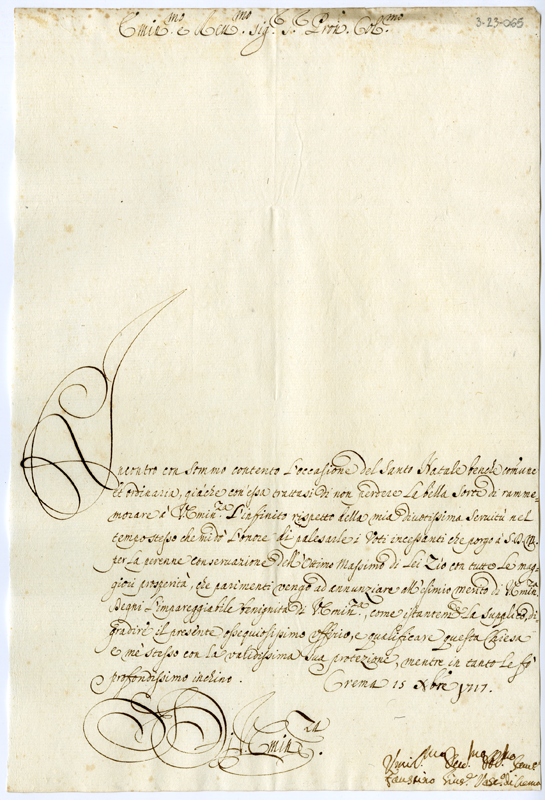 3-23-065
Emin.mo e Rev.mo Sig.r S.r Pron. Col.mo
Incontro con sommo contento l'occasione del Santo Natale benche comune
et ordinaria, giache con essa trattasi di non perdere la bella sorte di ramme=
morare a V. Emin.za l'infinito rispetto della mia divotissima servitù nel
tempo stesso che hò l'onore di palesarle i voti incessanti che porgo à S. D. M.
per la perenne conservazione dell'Ottimo Massimo di Lei Zio con tutte le mag=
giori prosperità, che parimenti vengo ad annunziare all'esimio merito di V. Emin.
Segni l'impareggiabile benignità di V. Emin.za, come istantem.te la supplico, di
gradire il presente ossequiosissimo offizio, e qualificare questa Chiesa
e me stesso con la validissima sua protezione, mentre in tanto le fò
profondissimo inchino. Crema 15 Xbre 1717.
Di V. Emin.za
Umil.mo Dev.mo Obl.mo Serv.e
Faustino Gius.e Vesc.o di Crema